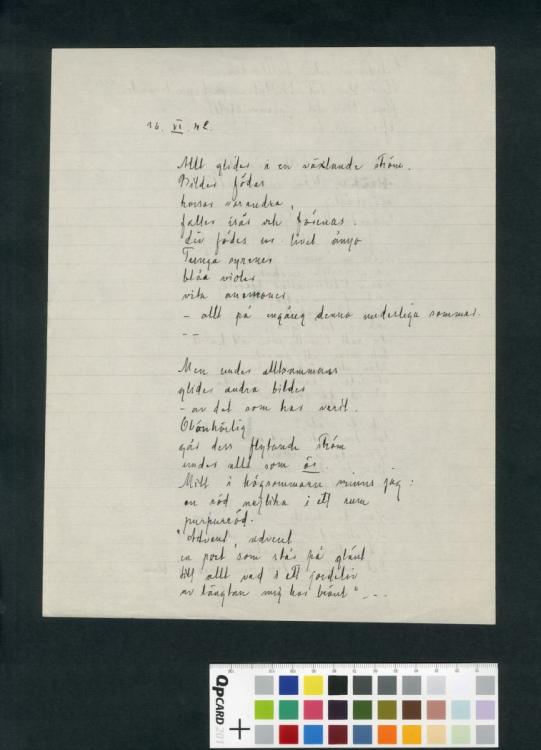 16. VI. 42.
Allt glider i en växlande ström.
Bilder födas
korsar varandra,
faller isär och förenas.
dör födes ur livet ånyo
Tunga syrener
blåa violer
vita anemoner
- allt på engång denna underliga sommar.
- -
Men under alltsammans
glider andra bilder
- av det som har varit.
Obönhörlig
går dess flytande ström
under allt som är
Mitt i högsommaren minns jag:
en röd nejlika i ett rum
purpurröd.
"Advent, advent
en port som står på glänt
till allt vad i ett jordeliv
av längtan mig har bränt" - - -
QPCARD 201